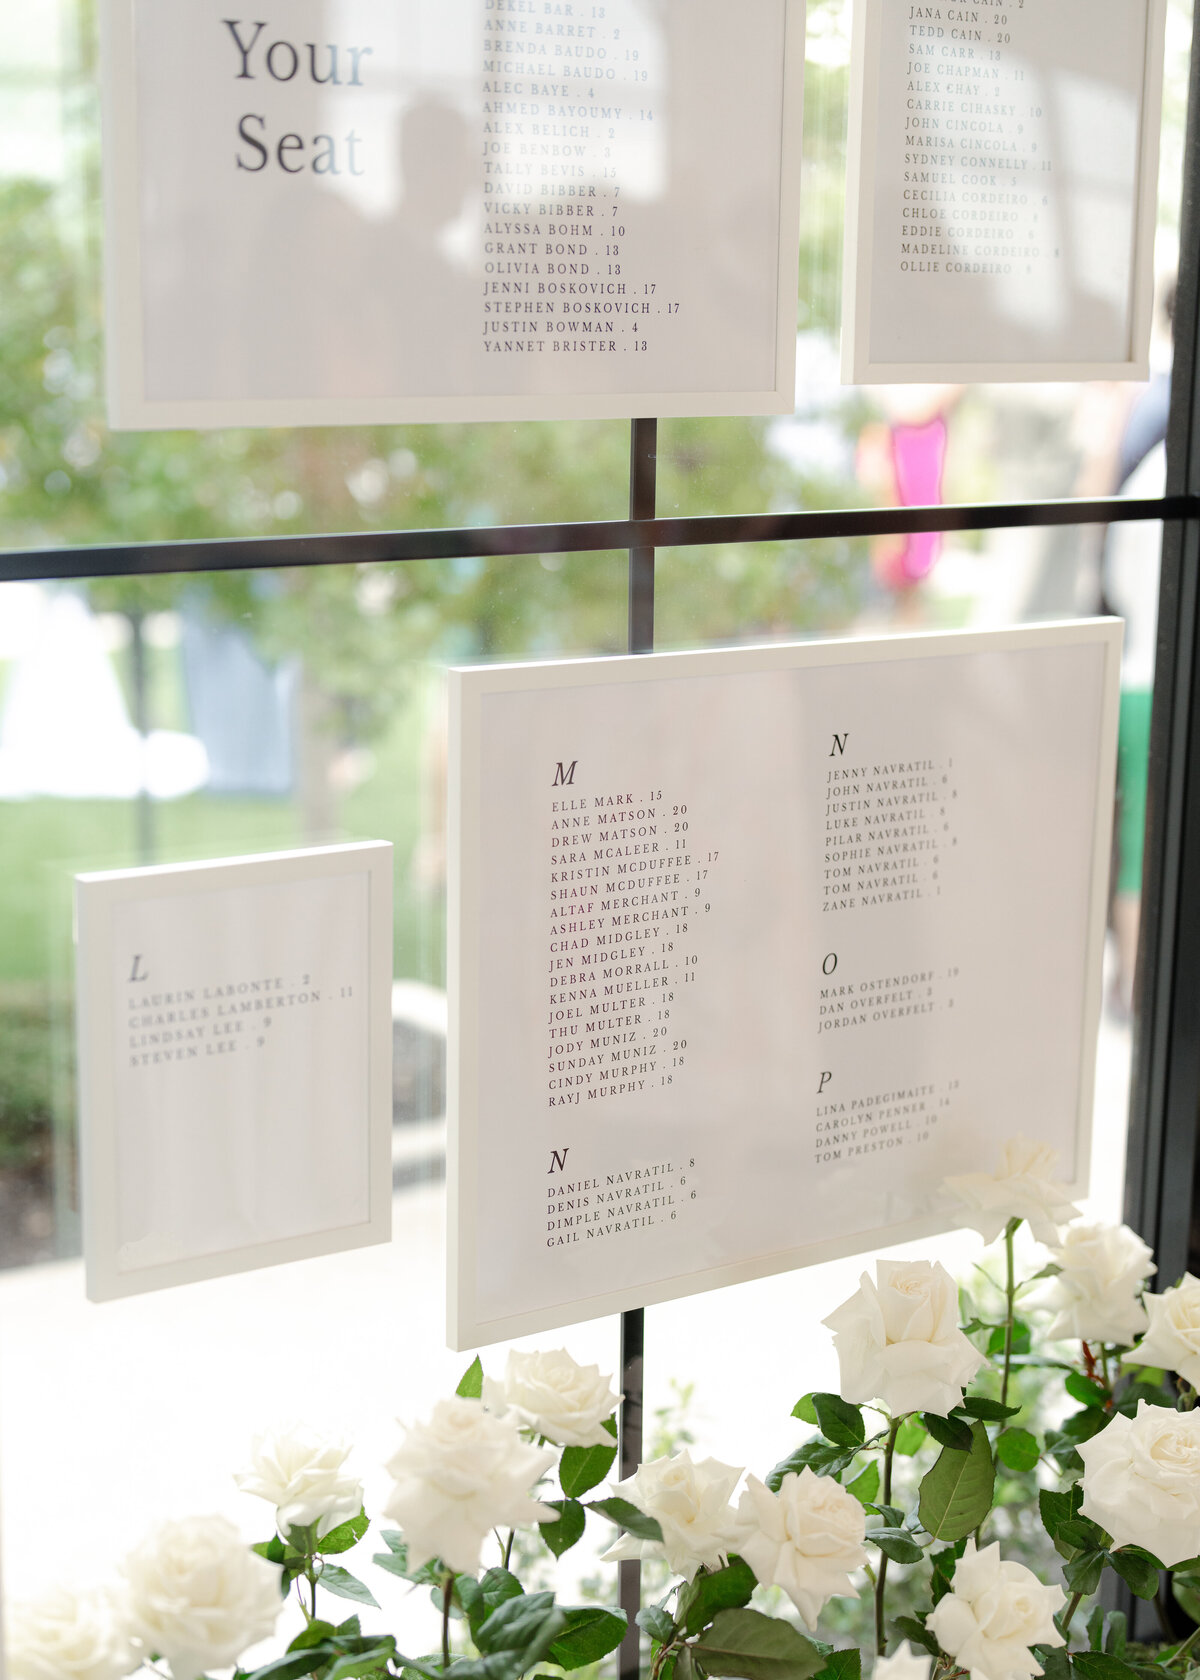 Your
Seat
DEKEL BAR . 13
ANNE BARRET . 2
BRENDA BAUDO . 19
MICHAEL BAUDO . 19
ALEC BAYE . 4
AHMED BAYOUMY . 14
ALEX BELICH . 2
JOE BENBOW . 3
TALLY BEVIS . 15
DAVID BIBBER . 7
VICKY BIBBER . 7
ALYSSA BOHM . 10
GRANT BOND . 13
OLIVIA BOND . 13
JENNI BOSKOVICH . 17
STEPHEN BOSKOVICH . 17
JUSTIN BOWMAN . 4
YANNET BRISTER . 13
CAIN . 2
JANA CAIN . 20
TEDD CAIN . 20
SAM CARR . 13
JOE CHAPMAN . 11
ALEX CHAY . 2
CARRIE CIHASKY . 10
JOHN CINCOLA . 9
MARISA CINCOLA . 9
SYDNEY CONNELLY . 11
SAMUEL COOK . 5
CECILIA CORDEIRO . 6
CHLOE CORDEIRO . 8
EDDIE CORDEIRO . 6
MADELINE CORDEIRO . 8
OLLIE CORDEIRO . 8
L
LAURIN LABONTE . 2
CHARLES LAMBERTON . 11
LINDSAY LEE . 9
STEVEN LEE . 9
M
ELLE MARK . 15
ANNE MATSON . 20
DREW MATSON . 20
SARA MCALEER . 11
KRISTIN MCDUFFEE . 17
SHAUN MCDUFFEE . 17
ALTAF MERCHANT . 9
ASHLEY MERCHANT . 9
CHAD MIDGLEY . 18
JEN MIDGLEY . 18
DEBRA MORRALL . 10
KENNA MUELLER . 11
JOEL MULTER . 18
THU MULTER . 18
JODY MUNIZ . 20
SUNDAY MUNIZ . 20
CINDY MURPHY . 18
RAYJ MURPHY . 18
N
DANIEL NAVRATIL . 8
DENIS NAVRATIL . 6
DIMPLE NAVRATIL . 6
GAIL NAVRATIL . 6
N
JENNY NAVRATIL . 1
JOHN NAVRATIL . 6
JUSTIN NAVRATIL . 8
LUKE NAVRATIL . 8
PILAR NAVRATIL . 6
SOPHIE NAVRATIL . 8
TOM NAVRATIL . 6
TOM NAVRATIL . 6
ZANE NAVRATIL . 1
O
MARK OSTENDORF . 19
DAN OVERFELT . 3
JORDAN OVERFELT . 3
P
LINA PADEGIMAITE . 13
CAROLYN PENNER . 14
DANNY POWELL . 10
TOM PRESTON . 10